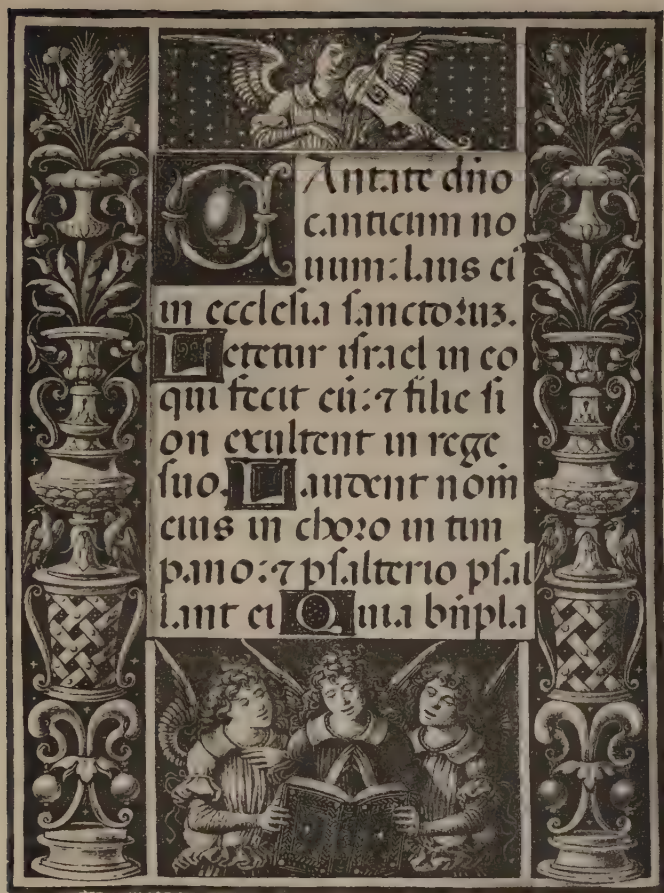 CAntate dño
canticum no
uum: laus ei᷒
in ecclesia sanctoꝝuꝫ.
Letetur israel in eo
qui fecit eū: ⁊ filie si
on exultent in rege
suo. Laudent nom̄
eius in choro in tim
pano: ⁊ psalterio psal
lant ei Quia bn̄pla